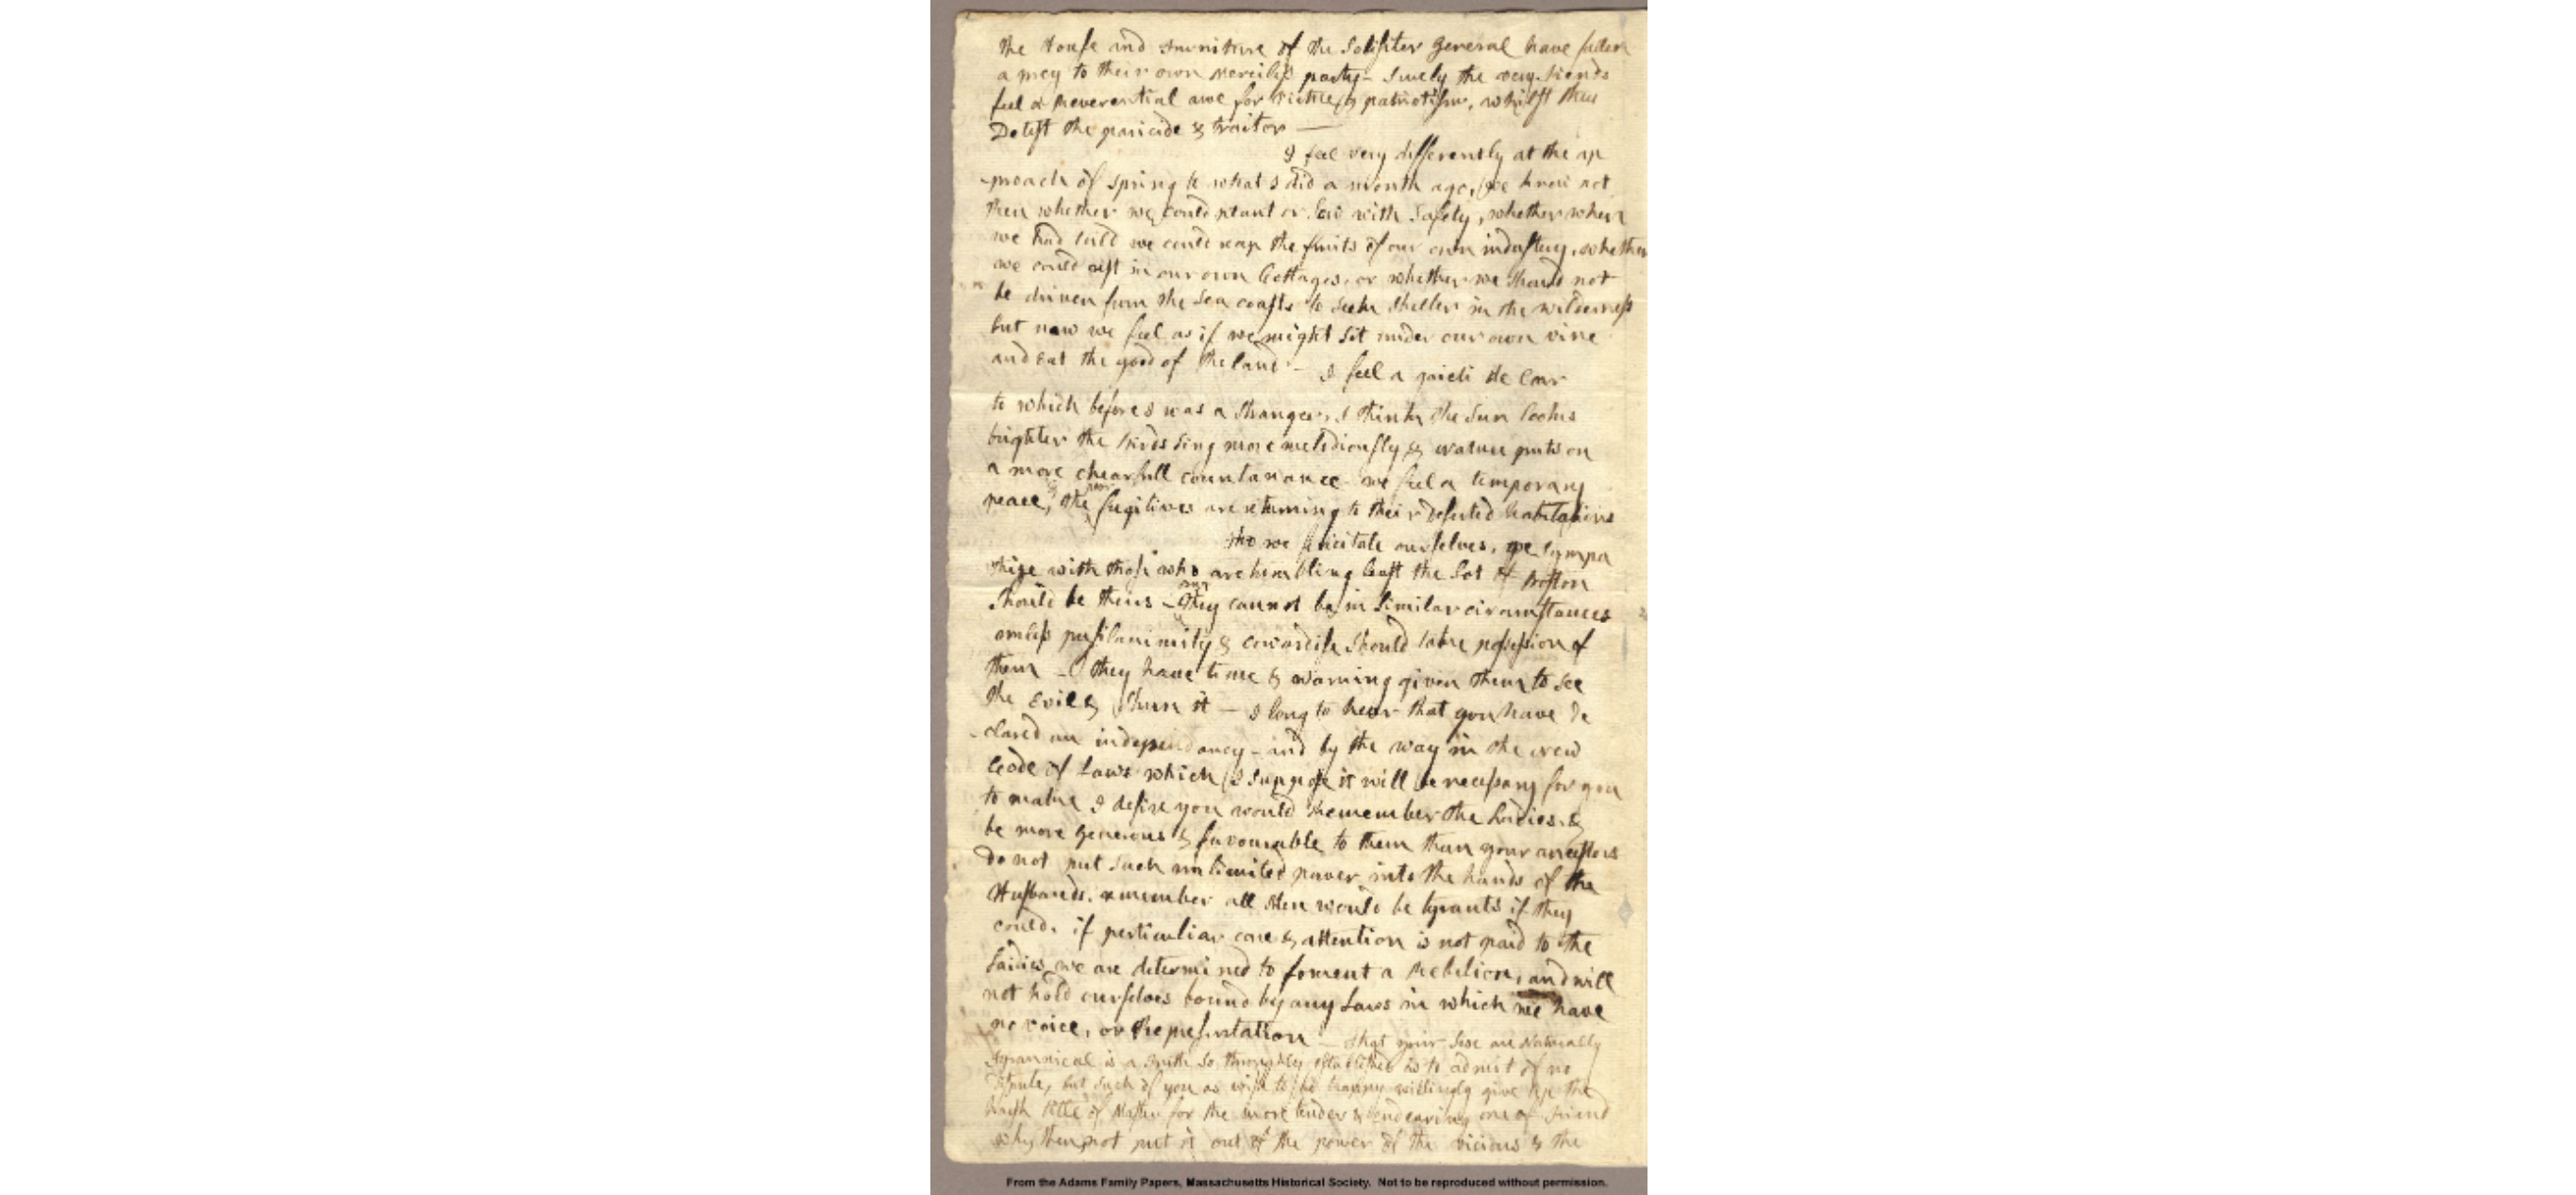 the House and furniture of the Solisiter General have fallen
a prey to their own merciless party - surely the very Fiends
feel a Reverential awe for Virtue & patriotism, whilst they
Detest the paricide & traitor —
I feel very differently at the ap
-proach of spring to what I did a month ago, we knew not
then whether we could plant or sow with safety, whether when
we had toild we could reap the fruits of our own industery, whether
we could rest in our own Cottages, or whether we should not
be driven from the sea coasts to seek shelter in the wilderness
but now we feel as if we might sit under our own vine
and eat the good of the land - I feel a gaieti de Coar
to which before I was a stranger, I think the Sun looks
brighter the Birds sing more melodiously & Nature puts on
a more chearfull countanance we feel a temporary
peace, & the poor fugitives are returning to their deserted habitations
tho we felicitate ourselves, we sympa
thize with those who are trembling least the Lot of Boston
should be theirs - they cannot be in similar circumstances
unless pusilanimity & cowardise should take possession of
them - they have time & warning given them to see
the Evil & shun it - I long to hear that you have de
-clared an independancy - and by the way in the new
Code of Laws which I suppose it will be necessary for you
to make I desire you would Remember the Ladies, &
be more generous & favourable to them than your ancestors
do not put such unlimited power into the hands of the
Husbands. remember all Men would be tyrants if they
could. if perticuliar care & attention is not paid to the
Laidies we are determined to foment a Rebelion, and will
not hold ourselves bound by any Laws in which we have
no voice, or Representation - that your Sex are Naturally
Tyrannical is a Truth so thoroughly established as to admit of no
dispute, but such of you as wish to be happy willingly give up the
harsh title of Master for the more tender & endearing one of Friend
why then not put it out of the power of the vicious & the
From the Adams Family Papers, Massachusetts Historical Society. Not to be reproduced without permission.